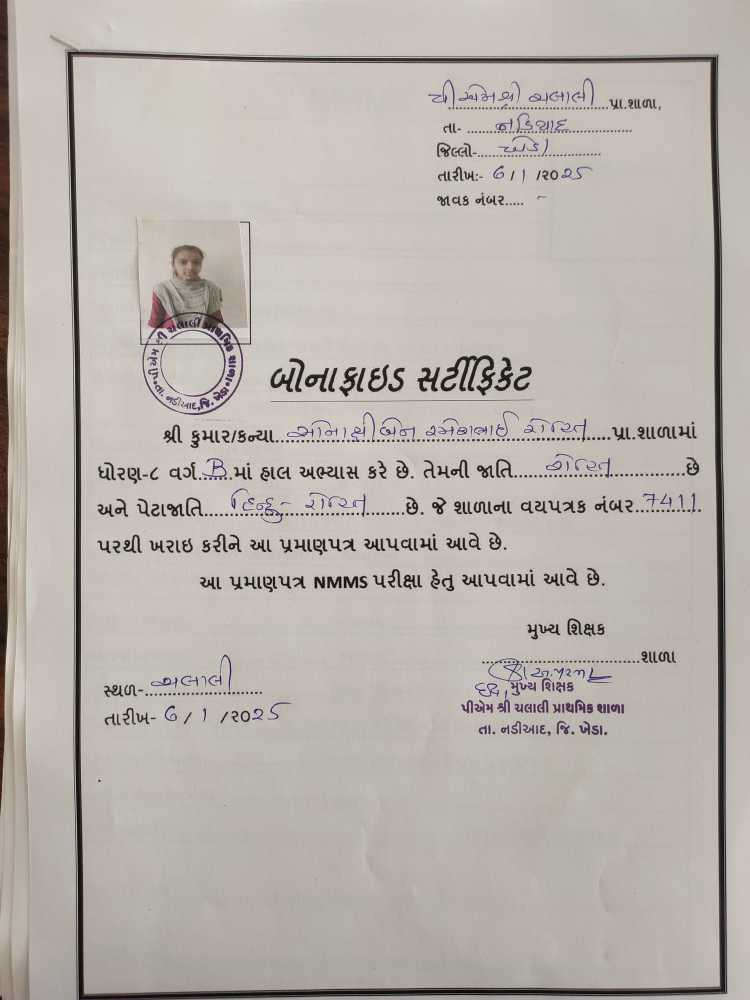 પીએમશ્રી ચલાલી પ્રા.શાળા,
તા- નડિયાદ
જિલ્લો- ખેડા
તારીખ:- 6/1/2025
જાવક નંબર..... -
પીએમ શ્રી ચલાલી પ્રાથમિક શાળા
તા. નડીઆદ, જિ. ખેડા
બોનાફાઇડ સર્ટીફિકેટ
શ્રી કુમાર/કન્યા સોનાક્ષીબેન રમેશભાઈ રોહિત પ્રા.શાળામાં
ધોરણ-૮ વર્ગ B માં હાલ અભ્યાસ કરે છે. તેમની જાતિ રોહિત છે
અને પેટાજાતિ હિન્દુ - રોહિત છે. જે શાળાના વયપત્રક નંબર 7411
પરથી ખરાઇ કરીને આ પ્રમાણપત્ર આપવામાં આવે છે.
આ પ્રમાણપત્ર NMMS પરીક્ષા હેતુ આપવામાં આવે છે.
મુખ્ય શિક્ષક
શાળા
સ્થળ- ચલાલી
તારીખ- 6/1/2025
મુખ્ય શિક્ષક
પીએમ શ્રી ચલાલી પ્રાથમિક શાળા
તા. નડીઆદ, જિ. ખેડા.